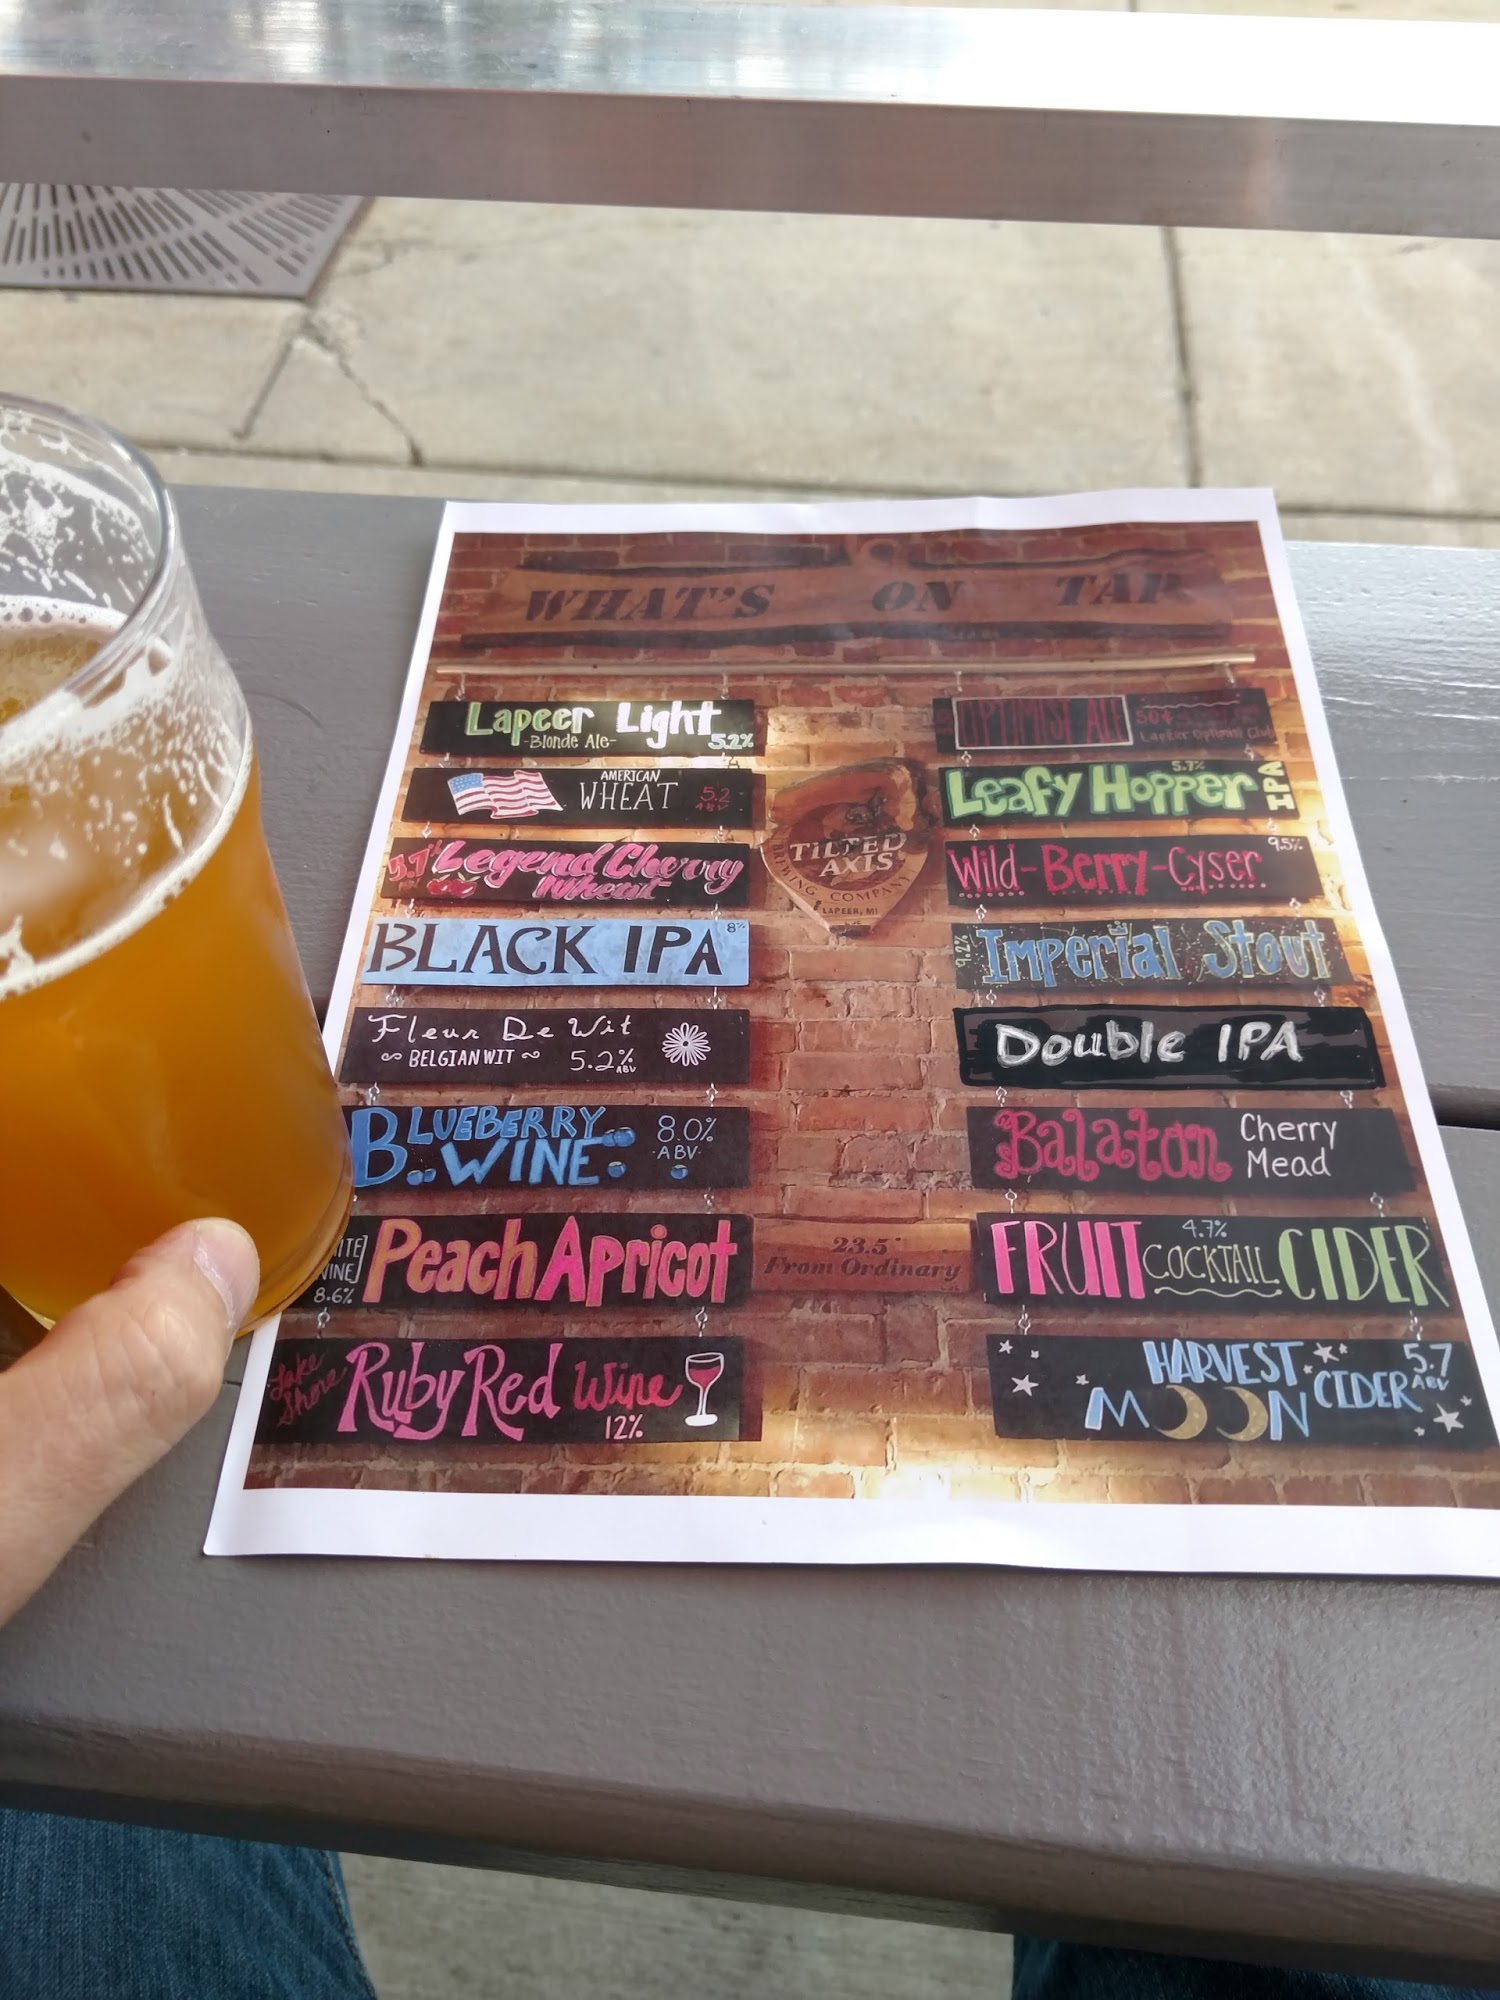 WHAT'S ON TAP
Lapeer Light
-Blonde Ale-
5.2%
AMERICAN
WHEAT
5.2
ABV
5.7%
Legend Cherry
Wheat
BLACK IPA
8%
Fleur De Wit
BELGIAN WIT
5.2%
ABV
BLUEBERRY
WINE
8.0%
-ABV-
WINE]
8.6%
Peach Apricot
Lake
Shore
Ruby Red Wine
12%
TILTED
AXIS
BREWING COMPANY
LAPEER, MI
23.5°
From Ordinary
OPTIMIST ALE
50¢
Lapeer Optimist Club
5.7%
Leafy Hopper IPA
Wild-Berry-Cyser
9.5%
9.2%
Imperial Stout
Double IPA
Balaton
Cherry
Mead
4.7%
FRUIT COCKTAIL CIDER
HARVEST
MOON
CIDER
5.7
ABV